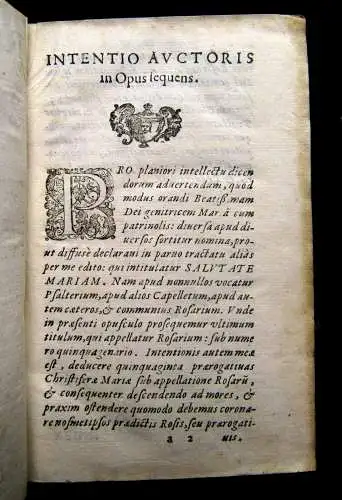 INTENTIO AVCTORIS
in Opus sequens.
PRO planiori intellectu dicen
dorum aduertendum, quod
modus orandi Beatiss. mam
Dei genitricem Mar ā cum
patrinolis: diuersa apud di-
uersos sortitur nomina, pro-
ut diffusè declarani in paruo tractatu aliàs
per me edito: qui intitulatur SALVTATE
MARIAM. Nam apud nonnullos vocatur
Psalterium, apud alios Capelletum, apud au-
tem cæteros, & communius Rosarium. Vnde
in præsenti opusculo prosequemur vltimum
titulum, qui appellatur Rosarium: sub nume
ro quinquagenario. Intentionis autem meæ
est, deducere quinquaginta prærogatiuas
Christiferæ Mariæ sub appellatione Rosarū,
& consequenter descendendo ad mores, &
praxim ostendere quomodo debemus corona-
re nosmetipsos prædictis Rosis, seu prærogati-
a 2 uis.